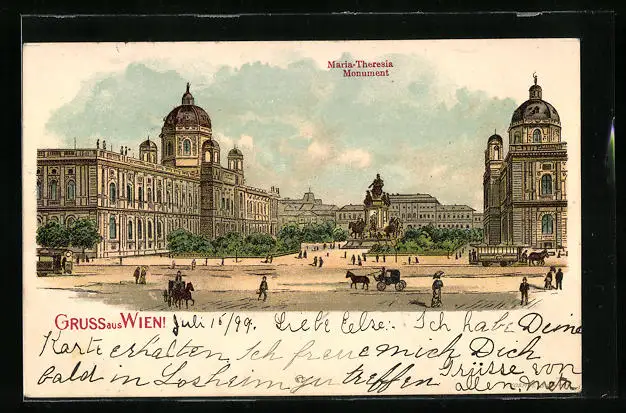 Maria-Theresia
Monument
GRUSS aus WIEN!
Juli 16/99. Liebe Else: Ich habe Deine
Karte erhalten Ich freue mich Dich
bald in Losheim zu treffen
Grüsse von
allen. Meta